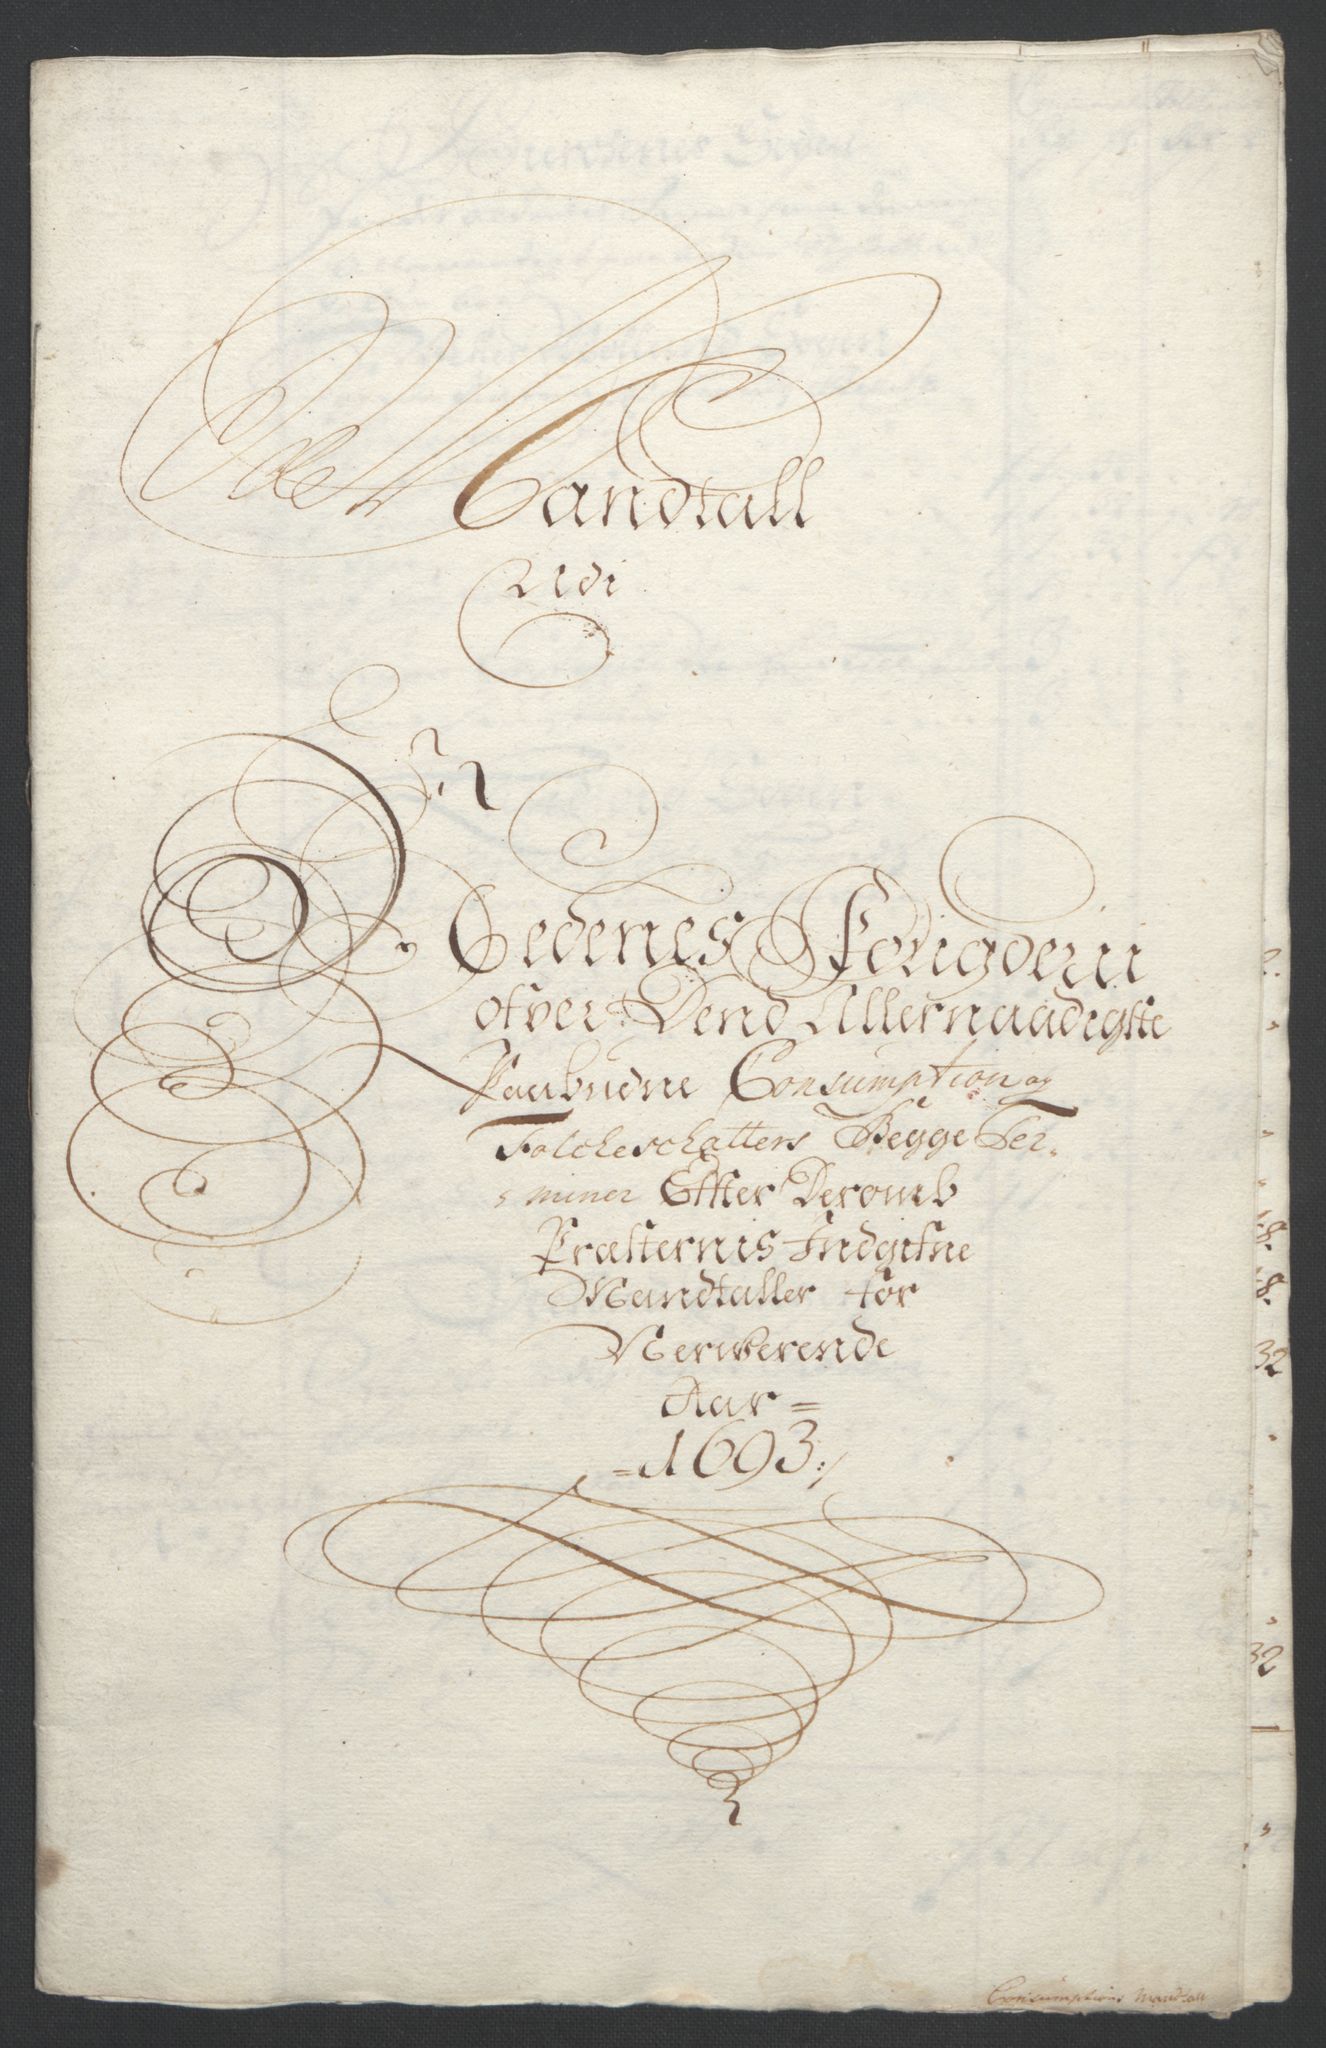 Mandtall
Udi
Nedenes Fougderii
ofver Dend Allernaadigste
Paabudne Consumption og
Folcheschatters Begge Ter-
miner Effter Deromb
Præsternis Indgifne
Mandtaller for
Nerwerende
Aar =
= 1693 ;/
Consumptions Mandtall
8.
8.
32
32